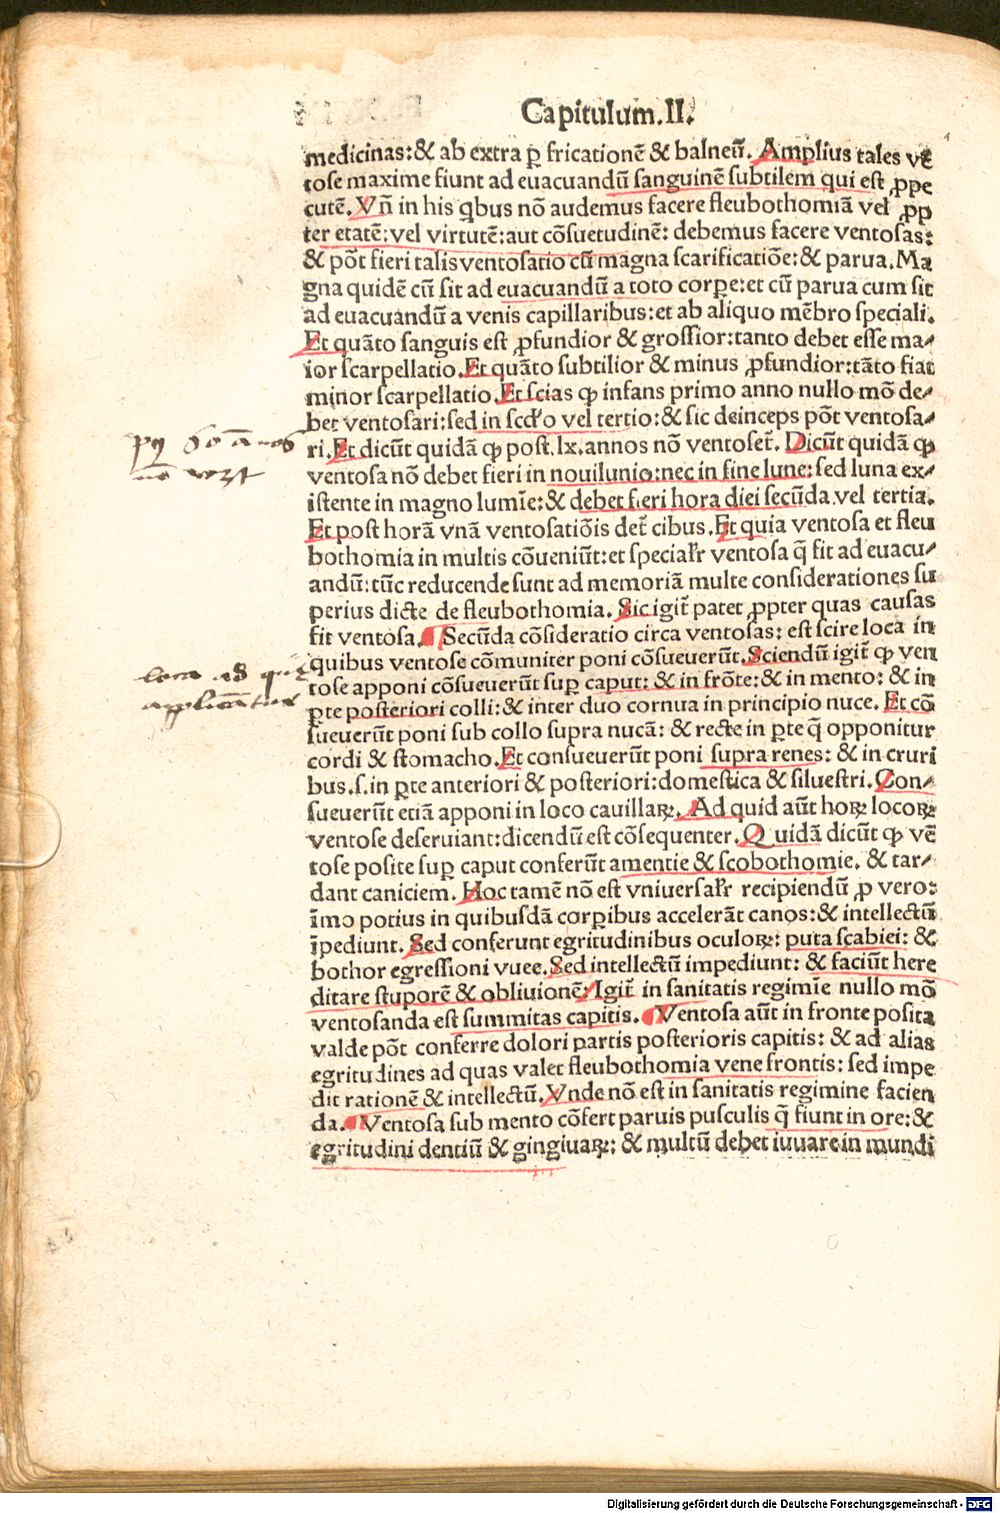 Capitulum.II.
medicinas:& ab extra ꝑ fricationē & balneū. Amplius tales vē
tose maxime fiunt ad euacuandū sanguinē subtilem qui est ꝓpe
cutē. Vñ in his qbus nō audemus facere fleubothomiā vel ꝓp
ter etatē:vel virtutē:aut cōsuetudinē: debemus facere ventosas:
& pōt fieri talis ventosatio cū magna scarificatiōe:& parua. Ma
gna quidē cū sit ad euacuandū a toto corꝑe:et cū parua cum sit
ad euacuandū a venis capillaribus:et ab aliquo mēbro speciali.
Et quāto sanguis est ꝓfundior & grossior:tanto debet esse ma⸗
ior scarpellatio. Et quāto subtilior & minus ꝓfundior:tāto fiat
minor scarpellatio. Et scias ꝙ infans primo anno nullo mō de⸗
bet ventosari:sed in scd'o vel tertio:& sic deinceps pōt ventosa⸗
ri. Et dicūt quidā ꝙ post.lx.annos nō ventoset̄. Dicūt quidā ꝙ
ventosa nō debet fieri in nouilunio:nec in fine lune:sed luna ex⸗
istente in magno lumīe:& debet fieri hora diei secūda vel tertia.
Et post horā vnā ventosatiōis det̄ cibus. Et quia ventosa et fleu
bothomia in multis cōueniūt:et specialr̄ ventosa q̄ fit ad euacu⸗
andū:tūc reducende sunt ad memoriā multe considerationes su
perius dicte de fleubothomia. Sic igit̄ patet ꝓpter quas causas
fit ventosa. ¶ Secūda cōsideratio circa ventosas: est scire loca in
quibus ventose cōmuniter poni cōsueuerūt. Sciendū igit̄ ꝙ ven
tose apponi cōsueuerūt suꝑ caput: & in frōte:& in mento: & in
ꝑte posteriori colli:& inter duo cornua in principio nuce. Et cō
sueuerūt poni sub collo supra nucā: & recte in ꝑte q̄ opponitur
cordi & stomacho. Et consueuerūt poni supra renes: & in cruri
bus.s.in ꝑte anteriori & posteriori:domestica & siluestri. Con⸗
sueuerūt etiā apponi in loco cauillaꝝ. Ad quid aūt hoꝝ locoꝝ
ventose deseruiant:dicendū est cōsequenter. Quidā dicūt ꝙ vē
tose posite suꝑ caput conferūt amentie & scobothomie. & tar⸗
dant caniciem. Hoc tamē nō est vniuersalr̄ recipiendū ꝓ vero:
īmo potius in quibusdā corꝑibus accelerāt canos:& intellectū
īpediunt. Sed conferunt egritudinibus oculoꝝ: puta scabiei: &
bothor egressioni vuee. Sed intellectū impediunt: & faciūt here
ditare stuporē & obliuionē: Igit̄ in sanitatis regimīe nullo mō
ventosanda est summitas capitis. ¶ Ventosa aūt in fronte posita
valde pōt conferre dolori partis posterioris capitis: & ad alias
egritudines ad quas valet fleubothomia vene frontis: sed impe
dit rationē & intellectū. Vnde nō est in sanitatis regimine facien
da. ¶ Ventosa sub mento cōfert paruis pusculis q̄ fiunt in ore:&
egritudini dentiū & gingiuaꝝ: & multū debet iuuare in mundi
60 ānos
loca ad
Digitalisierung gefördert durch die Deutsche Forschungsgemeinschaft - DFG